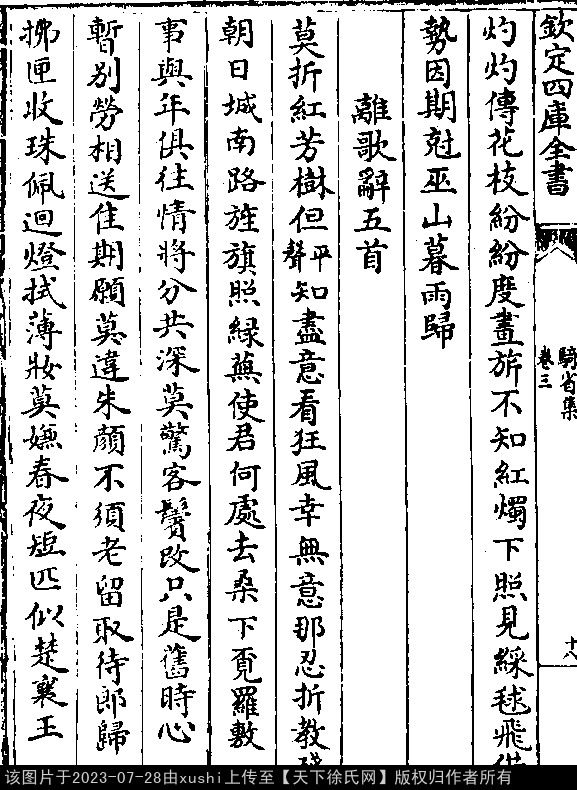 欽定四庫全書
騎省集
卷三
十八
灼灼傳花枝紛紛度畫旂不知紅燭下照見綵毬飛借
勢因期尅巫山暮雨歸
離歌辭五首
莫折紅芳樹但平聲知盡意看狂風幸無意那忍折教殘
朝日城南路旌旗照緑蕪使君何處去桑下覔羅敷
事與年俱往情將分共深莫驚客鬢改只是舊時心
暫别勞相送佳期願莫違朱顔不須老留取待郎歸
拂匣收珠佩迴燈拭薄妝莫嫌春夜短匹似楚襄王
该图片于2023-07-28由xushi上传至【天下徐氏网】版权归作者所有